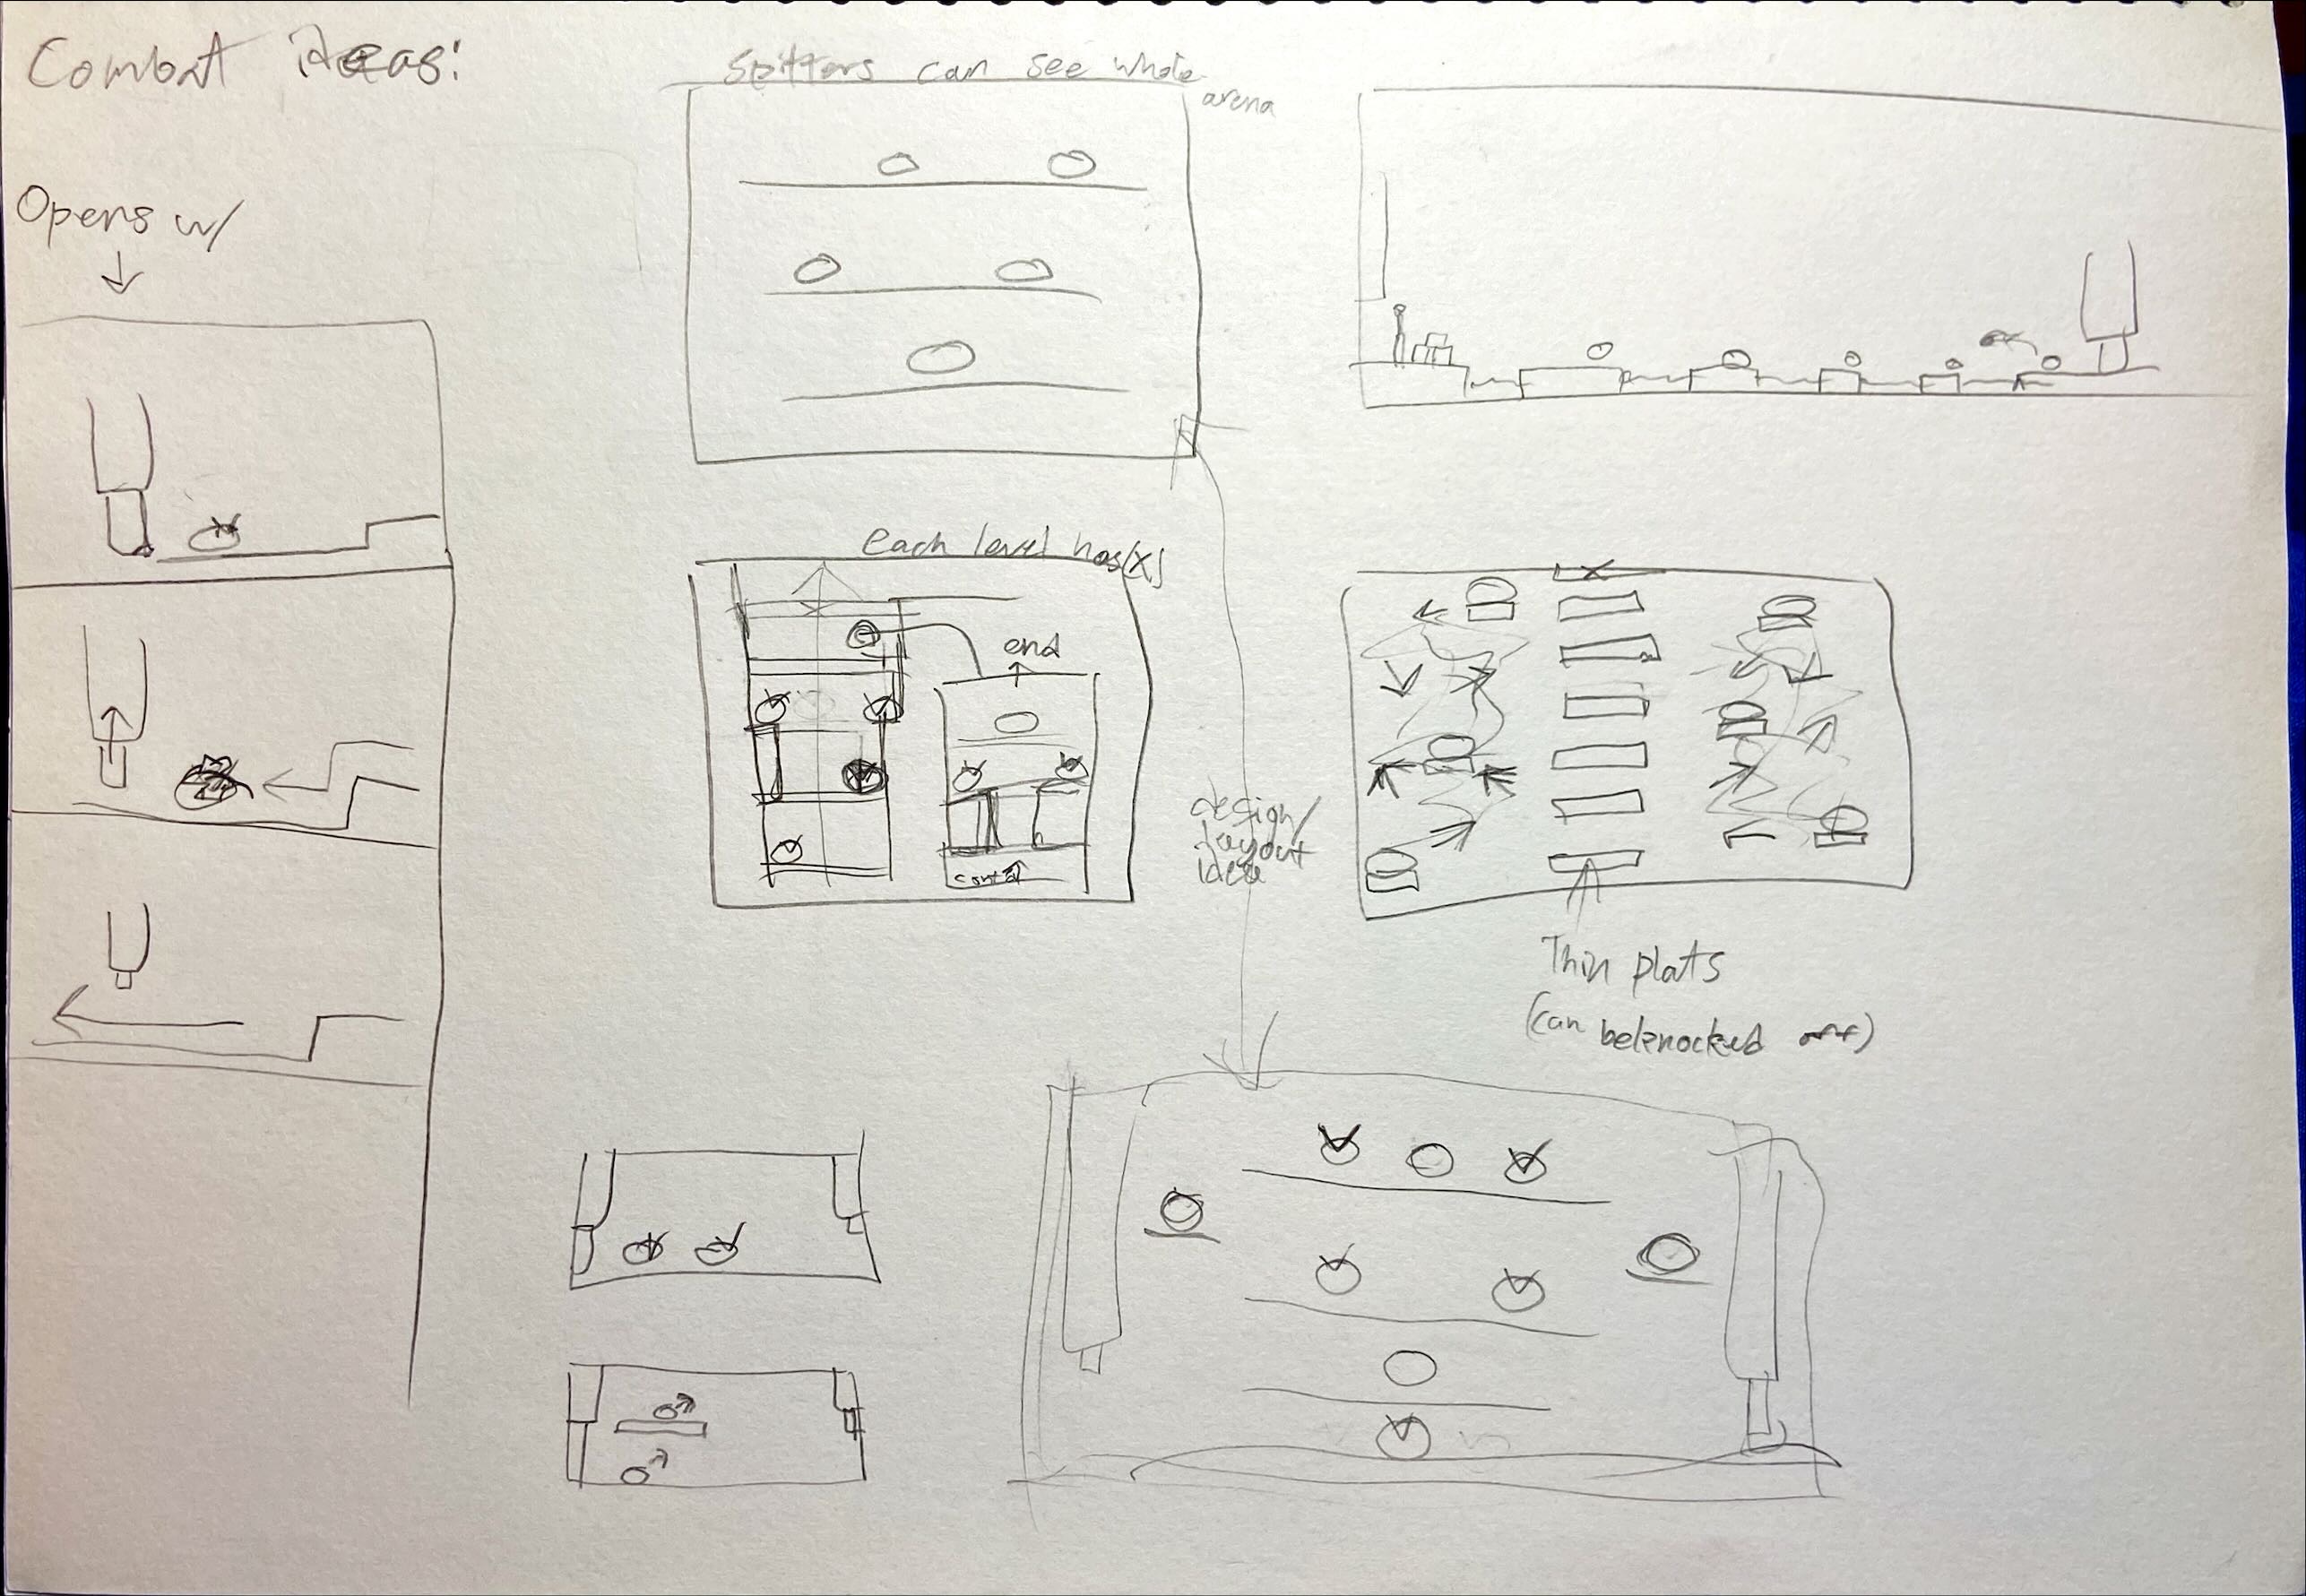 Combat Ideas:
Opens w/
Spitters can see whole
arena
each level has (x)
end
cont'd
design/
layout
idea
Thin plats
(can be knocked off)